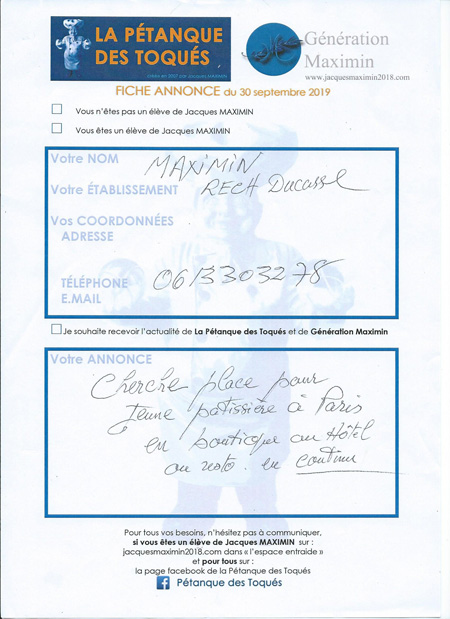 LA PÉTANQUE
DES TOQUÉS
Génération
Maximin
www.jacquesmaximin2018.com
FICHE ANNONCE du 30 septembre 2019
Vous n'êtes pas un élève de Jacques MAXIMIN
Vous êtes un élève de Jacques MAXIMIN
Votre NOM MAXIMIN
Votre ÉTABLISSEMENT RECH Ducasse
Vos COORDONNÉES
ADRESSE
TÉLÉPHONE 0613303278
E.MAIL
Je souhaite recevoir l'actualité de La Pétanque des Toqués et de Génération Maximin
Votre ANNONCE
Cherche place pour
Jeune patissière à Paris
en boutique ou Hôtel
ou resto. en continu
Pour tous vos besoins, n'hésitez pas à communiquer,
si vous êtes un élève de Jacques MAXIMIN sur :
jacquesmaximin2018.com dans « l'espace entraide »
et pour tous sur :
la page facebook de la Pétanque des Toqués
Pétanque des Toqués